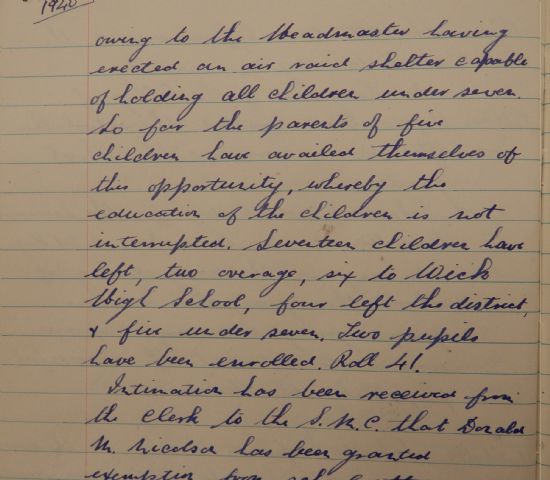 1940
owing to the Headmaster having
erected an air raid shelter capable
of holding all children under seven.
So far the parents of five
children have availed themselves of
this opportunity, whereby the
education of the children is not
interrupted. Seventeen children have
left, two overage, six to Wick
High School, four left the district,
& five under seven. Two pupils
have been enrolled. Roll 41.
Intimation has been received from
the Clerk to the S.M.C. that Donald
M. Nicolson has been granted
exemption from